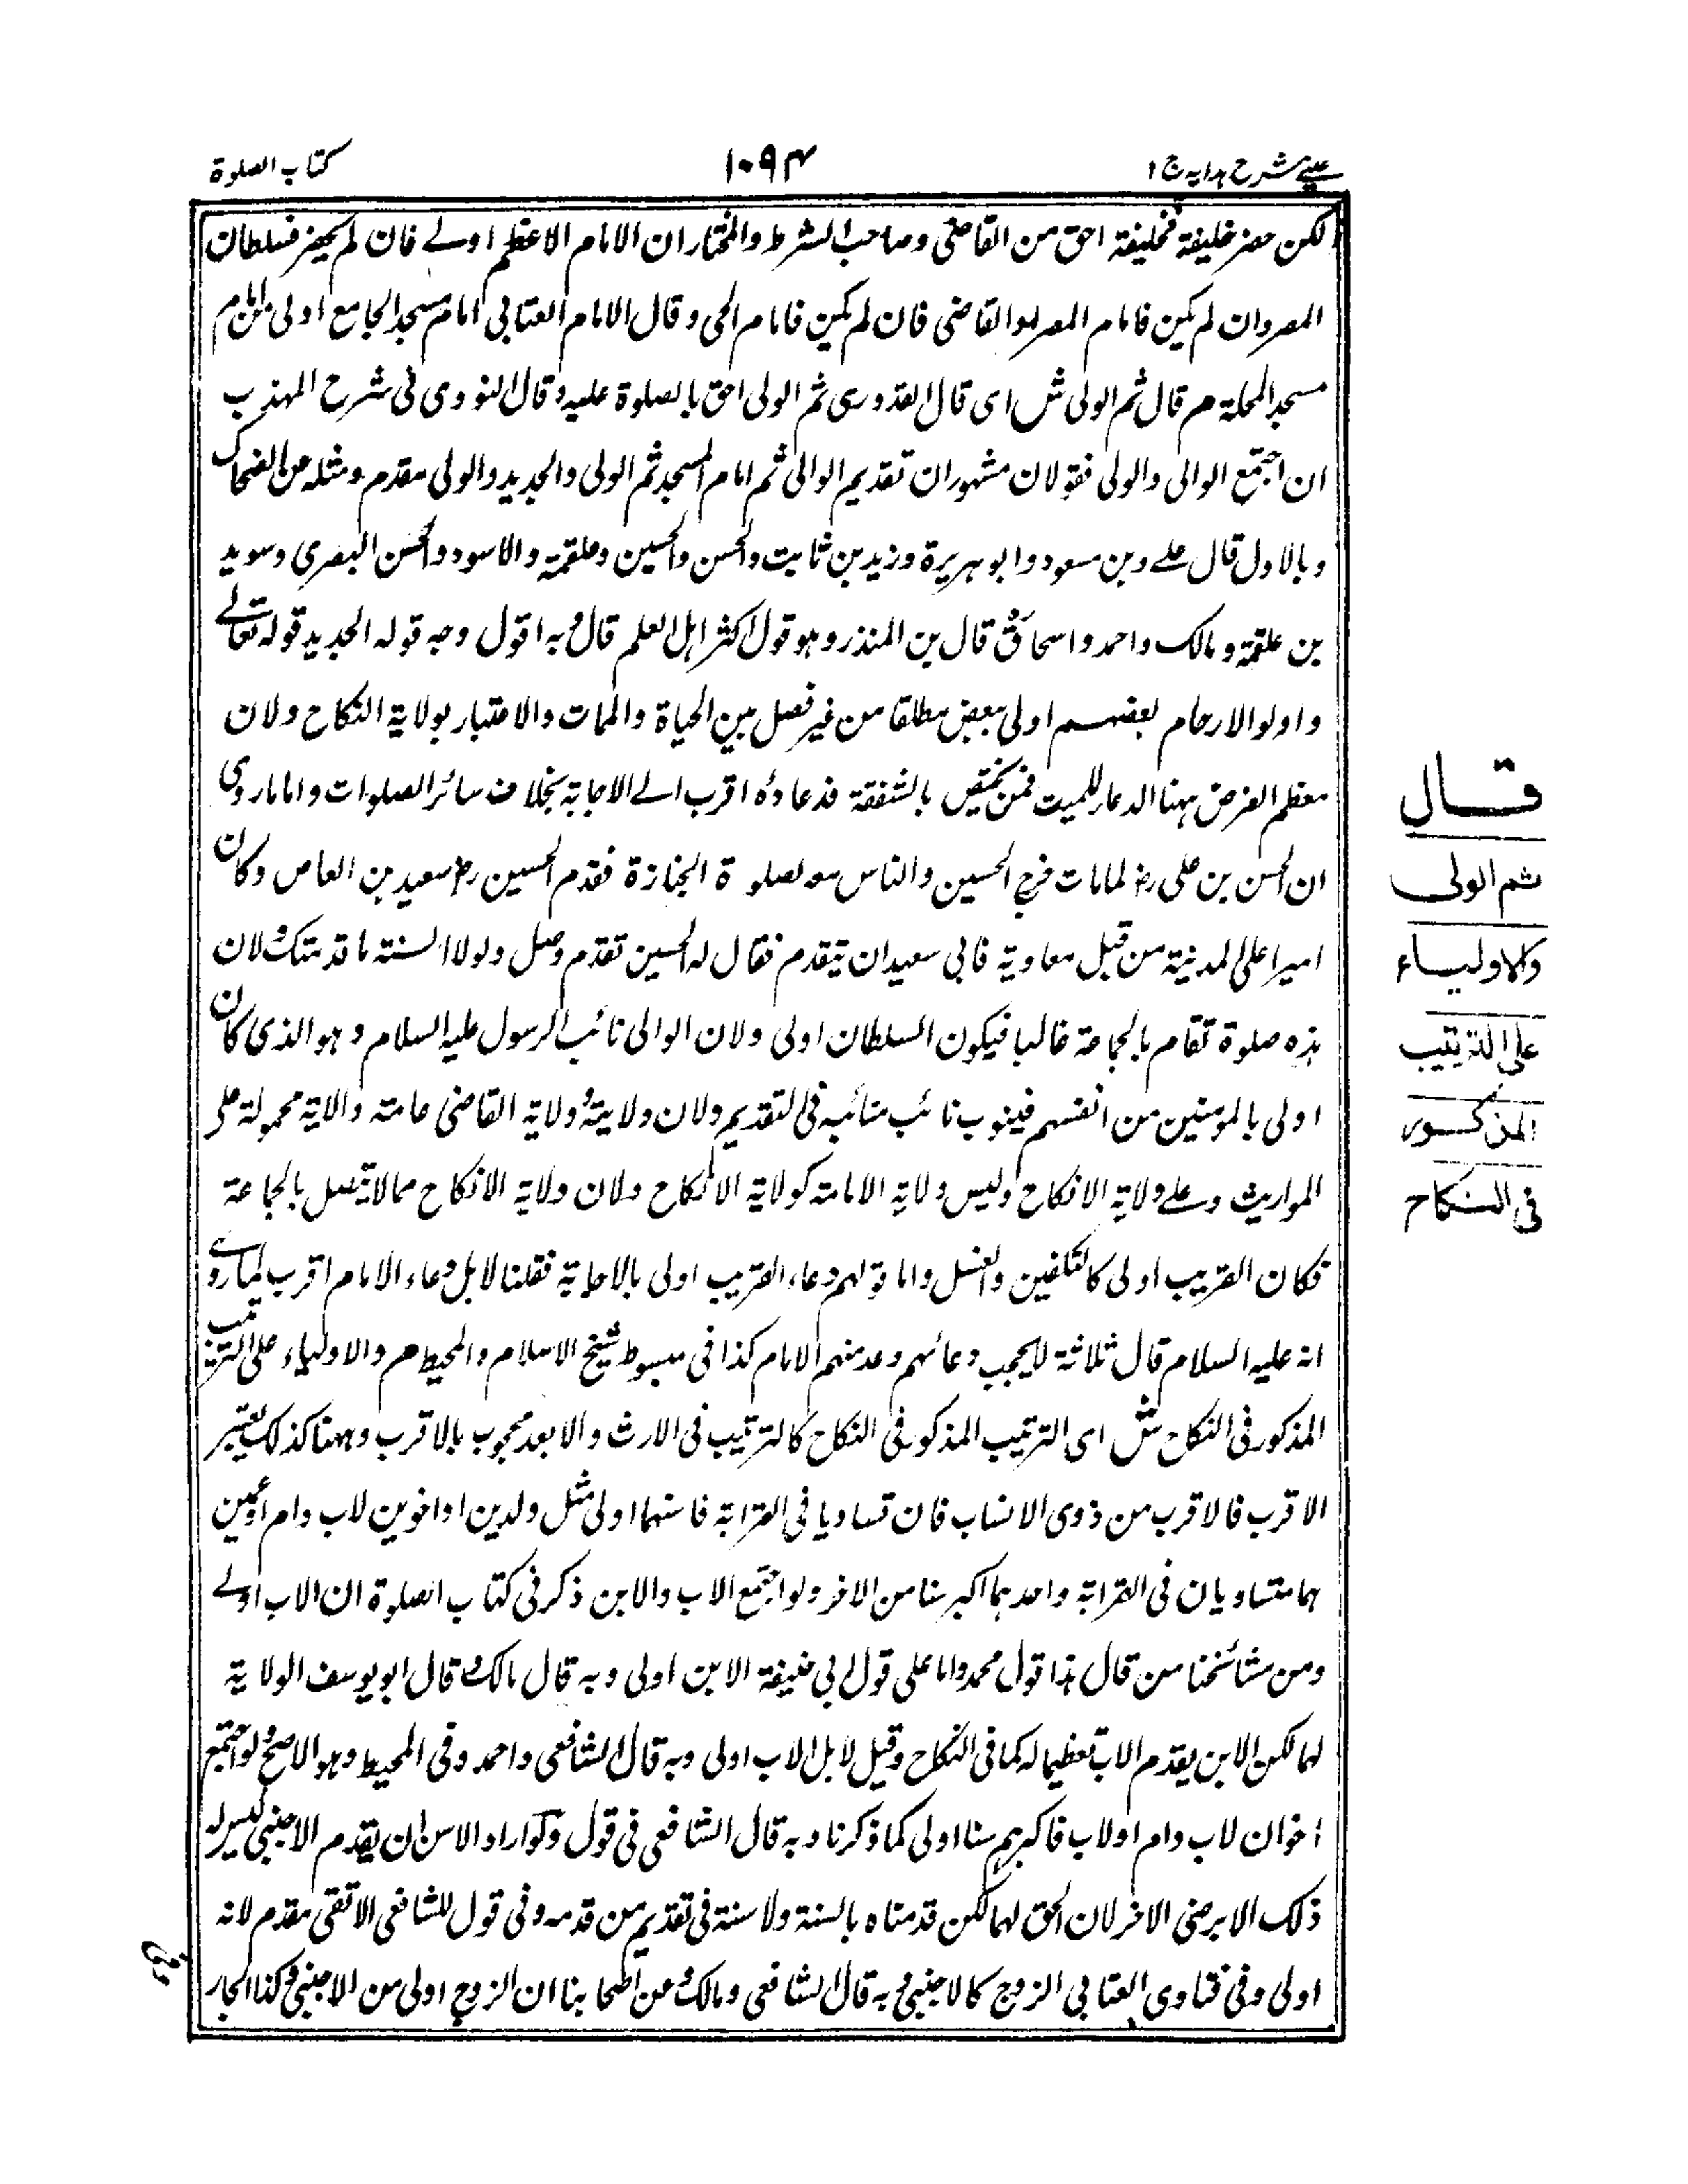 عینے شرح ہدایہ ج ۱
۱۰۹۴
کتاب الصلوۃ
لکن حضر خلیفۃ فخلیفۃ احق من القاضی وصاحب الشرط والمختار ان الامام الاعظم اولے فان لم یحضر فسلطان
المصر وان لم یکن فامام المصر او القاضی فان لم یکن فامام الحی وقال الامام العتابی امام مسجد الجامع اولی من امام
مسجد المحلۃ م قال ثم الولی ش ای قال القدوری ثم الولی احق بالصلوۃ علیہ وقال النووی فی شرح المہذب
ان اجتمع الوالی والولی فقولان مشہوران تقدیم الوالی ثم امام المسجد ثم الولی والجدید والولی مقدم ومثلہ عن الضحاک
وبالاول قال علے وبن مسعود وابو ہریرۃ وزید بن ثابت والحسن والحسین وعلقمۃ والاسود والحسن البصری وسوید
بن علقمۃ ومالک واحمد واسحاق قال بن المنذر وہو قول اکثر اہل العلم قال وبہ اقول وجہ قولہ الجدید قولہ تعالے
واولو الارحام بعضہم اولی ببعض مطلقا من غیر فصل بین الحیاۃ والممات والاعتبار بولایۃ النکاح ولان
معظم الغرض ہہنا الدعاء للمیت فمن یختص بالشفقۃ فدعاؤہ اقرب الے الاجابۃ بخلاف سائر الصلوات وانا ما روی
ان الحسن بن علی رضـ لما مات خرج الحسین والناس معہ لصلوۃ الجنازۃ فقدم الحسین رضـ سعید بن العاص وکان
امیرا علی المدینۃ من قبل معاویۃ فابی سعید ان یتقدم فقال لہ الحسین تقدم وصل ولولا السنۃ ما قدمتک ولان
ہذہ صلوۃ تقام بالجماعۃ غالبا فیکون السلطان اولی ولان الوالی نائب الرسول علیہ السلام وہو الذی کان
اولی بالمومنین من انفسہم فینوب نائب منابہ فی التقدیم ولان ولایتہ ولایۃ القاضی عامتہ والایۃ محمولۃ علی
المواریث وعلے ولایۃ الانکاح ولیس ولایۃ الامامۃ کولایۃ الانکاح ولان ولایۃ الانکاح مما لا یتصل بالجماعۃ
فکان القریب اولی کالتکفین والغسل واما قولہم دعاء القریب اولی بالاجابۃ فقلنا لا بل دعاء الامام اقرب لما روے
انہ علیہ السلام قال ثلاثۃ لا یحجب دعائہم وعد منہم الامام کذا فی مبسوط شیخ الاسلام والمحیط م والاولیاء علی الترتیب
المذکور فی النکاح ش ای الترتیب المذکور فی النکاح کالترتیب فی الارث والابعد محجوب بالاقرب وہہنا کذلک یعتبر
الاقرب فالاقرب من ذوی الانساب فان تساویا فی القرابۃ فاسنہما اولی مثل ولدین او اخوین لاب وام او عمین
ہما متساویان فی القرابۃ واحدہما اکبر سنا من الاخر ولو اجتمع الاب والابن ذکر فی کتاب الصلوۃ ان الاب اولے
ومن مشائخنا من قال ہذا قول محمد واما علی قول ابی حنیفۃ الابن اولی وبہ قال مالک وقال ابو یوسف الولایۃ
لہما لکن الابن یقدم الاب تعظیما لہ کما فی النکاح وقیل لا بل الاب اولی وبہ قال الشافعی واحمد وفی المحیط وہو الاصح ولو اجتمع
اخوان لاب وام او لاب فاکبرہم سنا اولی کما ذکرنا وبہ قال الشافعی فی قول ولو اراد الاسن ان یقدم الاجنبی لیس لہ
ذلک الا برضی الاخر لان الحق لہما لکن قدمناہ بالسنۃ ولا سنۃ فی تقدیم من قدمہ وفی قول للشافعی الاتقی مقدم لانہ
اولی وفی فتاوی العتابی الزوج کالاجنبی وبہ قال الشافعی ومالک وعن اصحابنا ان الزوج اولی من الاجنبی وکذا الجار
قال
ثم الولی
والاولیاء
علی الترتیب
المذکور
فی النکاح